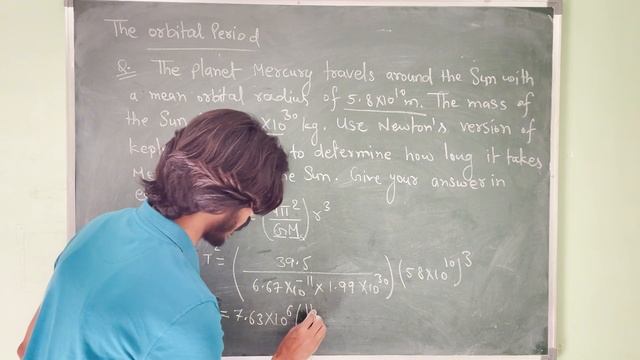 The orbital Period
Q. The planet Mercury travels around the Sun with
a mean orbital radius of 5.8×10¹⁰m. The mass of
the Sun ×10³⁰ kg. Use Newton's version of
to determine how long it takes
the Sun. Give your answer in
= (4π²/GM) r³
T² = (39.5 / 6.67×10⁻¹¹ × 1.99×10³⁰) (58×10¹⁰)³
= 7.63×10⁶ (